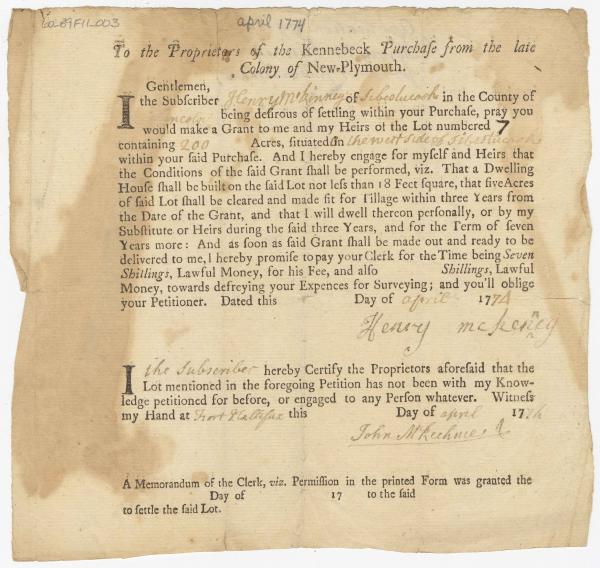 60-89F11-003
april 1774
To the Proprietors of the Kennebeck Purchaſe from the late
Colony of New-Plymouth.
Gentlemen,
I the Subſcriber Henry McKinney of Sebeolucook in the County of
Lincoln being deſirous of ſettling within your Purchaſe, pray you
would make a Grant to me and my Heirs of the Lot numbered 7
containing 200 Acres, ſituated on the west side of Sebestucook
within your ſaid Purchaſe. And I hereby engage for myſelf and Heirs that
the Conditions of the ſaid Grant ſhall be performed, viz. That a Dwelling
Houſe ſhall be built on the ſaid Lot not leſs than 18 Feet ſquare, that five Acres
of ſaid Lot ſhall be cleared and made fit for Tillage within three Years from
the Date of the Grant, and that I will dwell thereon perſonally, or by my
Subſtitute or Heirs during the ſaid three Years, and for the Term of ſeven
Years more: And as ſoon as ſaid Grant ſhall be made out and ready to be
delivered to me, I hereby promiſe to pay your Clerk for the Time being Seven
Shillings, Lawful Money, for his Fee, and alſo Shillings, Lawful
Money, towards defreying your Expences for Surveying; and you'll oblige
your Petitioner. Dated this Day of april 1774
Henry mckeney
I the Subscriber hereby Certify the Proprietors aforeſaid that the
Lot mentioned in the foregoing Petition has not been with my Know-
ledge petitioned for before, or engaged to any Perſon whatever. Witneſs
my Hand at Fort Hallifax this Day of april 1774
John McKechnie
A Memorandum of the Clerk, viz. Permiſſion in the printed Form was granted the
Day of 17 to the ſaid
to ſettle the ſaid Lot.